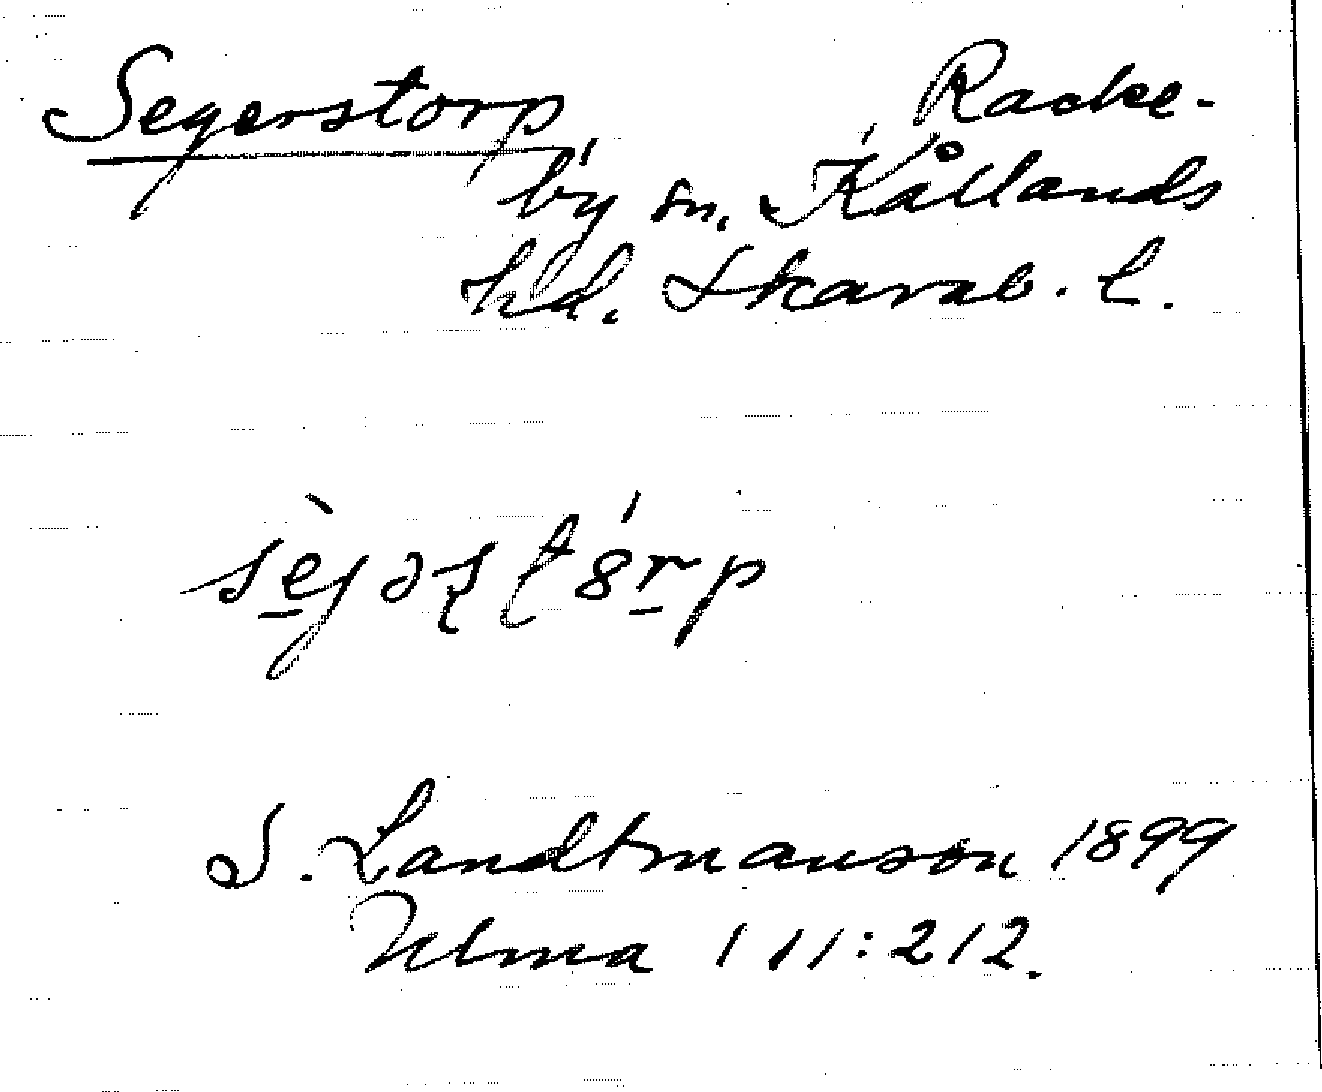 Segerstorp Racke-
by sn. Kållands
hd. Skarab. l.
S. Landtmanson 1899
Ulma 111:212.